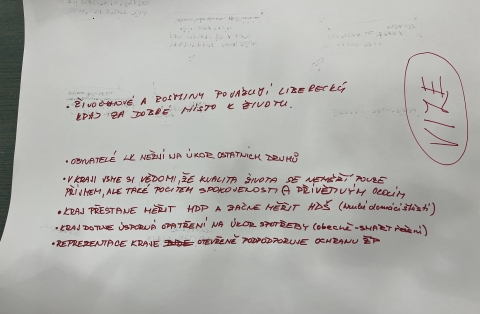 VIZE
• ŽIVOČICHOVÉ A ROSTLINY POVAŽUJÍ LIBERECKÝ
KRAJ ZA DOBRÉ MÍSTO K ŽIVOTU.
• OBYVATELÉ LK NEŽIJÍ NA ÚKOR OSTATNÍCH DRUHŮ
• V KRAJI JSME SI VĚDOMI, ŽE KVALITA ŽIVOTA SE NEMĚŘÍ POUZE
PŘÍJMEM, ALE TAKÉ POCITEM SPOKOJENOSTI A PŘÍVĚTIVÝM OKOLÍM
• KRAJ PŘESTANE MĚŘIT HDP A ZAČNE MĚŘIT HDŠ (hrubé domácí štěstí)
• KRAJ DOTUJE ÚSPORNÁ OPATŘENÍ NA ÚKOR SPOTŘEBY (obecně - SMART ŘEŠENÍ)
• REPREZENTACE KRAJE OTEVŘENĚ PODPORUJE OCHRANU ŽP